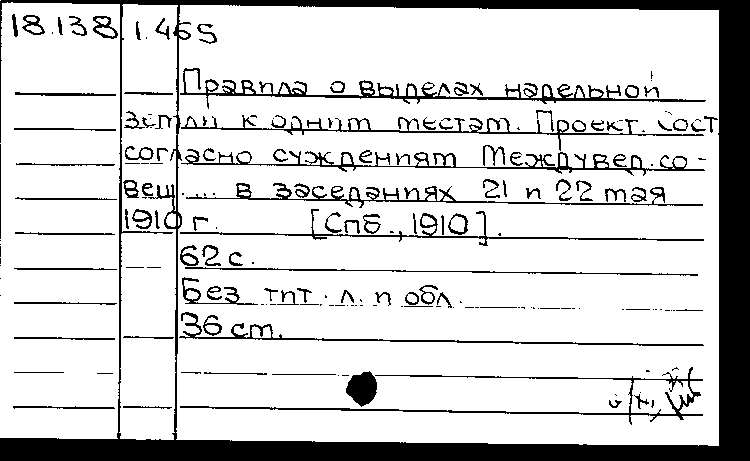 18.138.1.465
Правила о выделах надельной
земли к одним местам. Проект. Сост.
согласно суждениям Междувед. со-
вещ.... в заседаниях 21 и 22 мая
1910 г. [Спб., 1910].
62 с.
Без тит. л. и обл.
36 см.